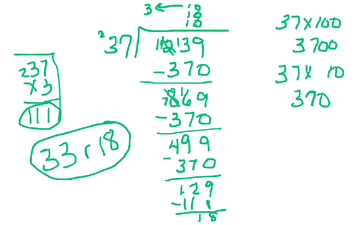 3 ← 10
10
10
37 × 100
3700
37 × 10
370
37 1239
-370
869
-370
499
-370
129
-111
18
37
×3
111
33 r 18